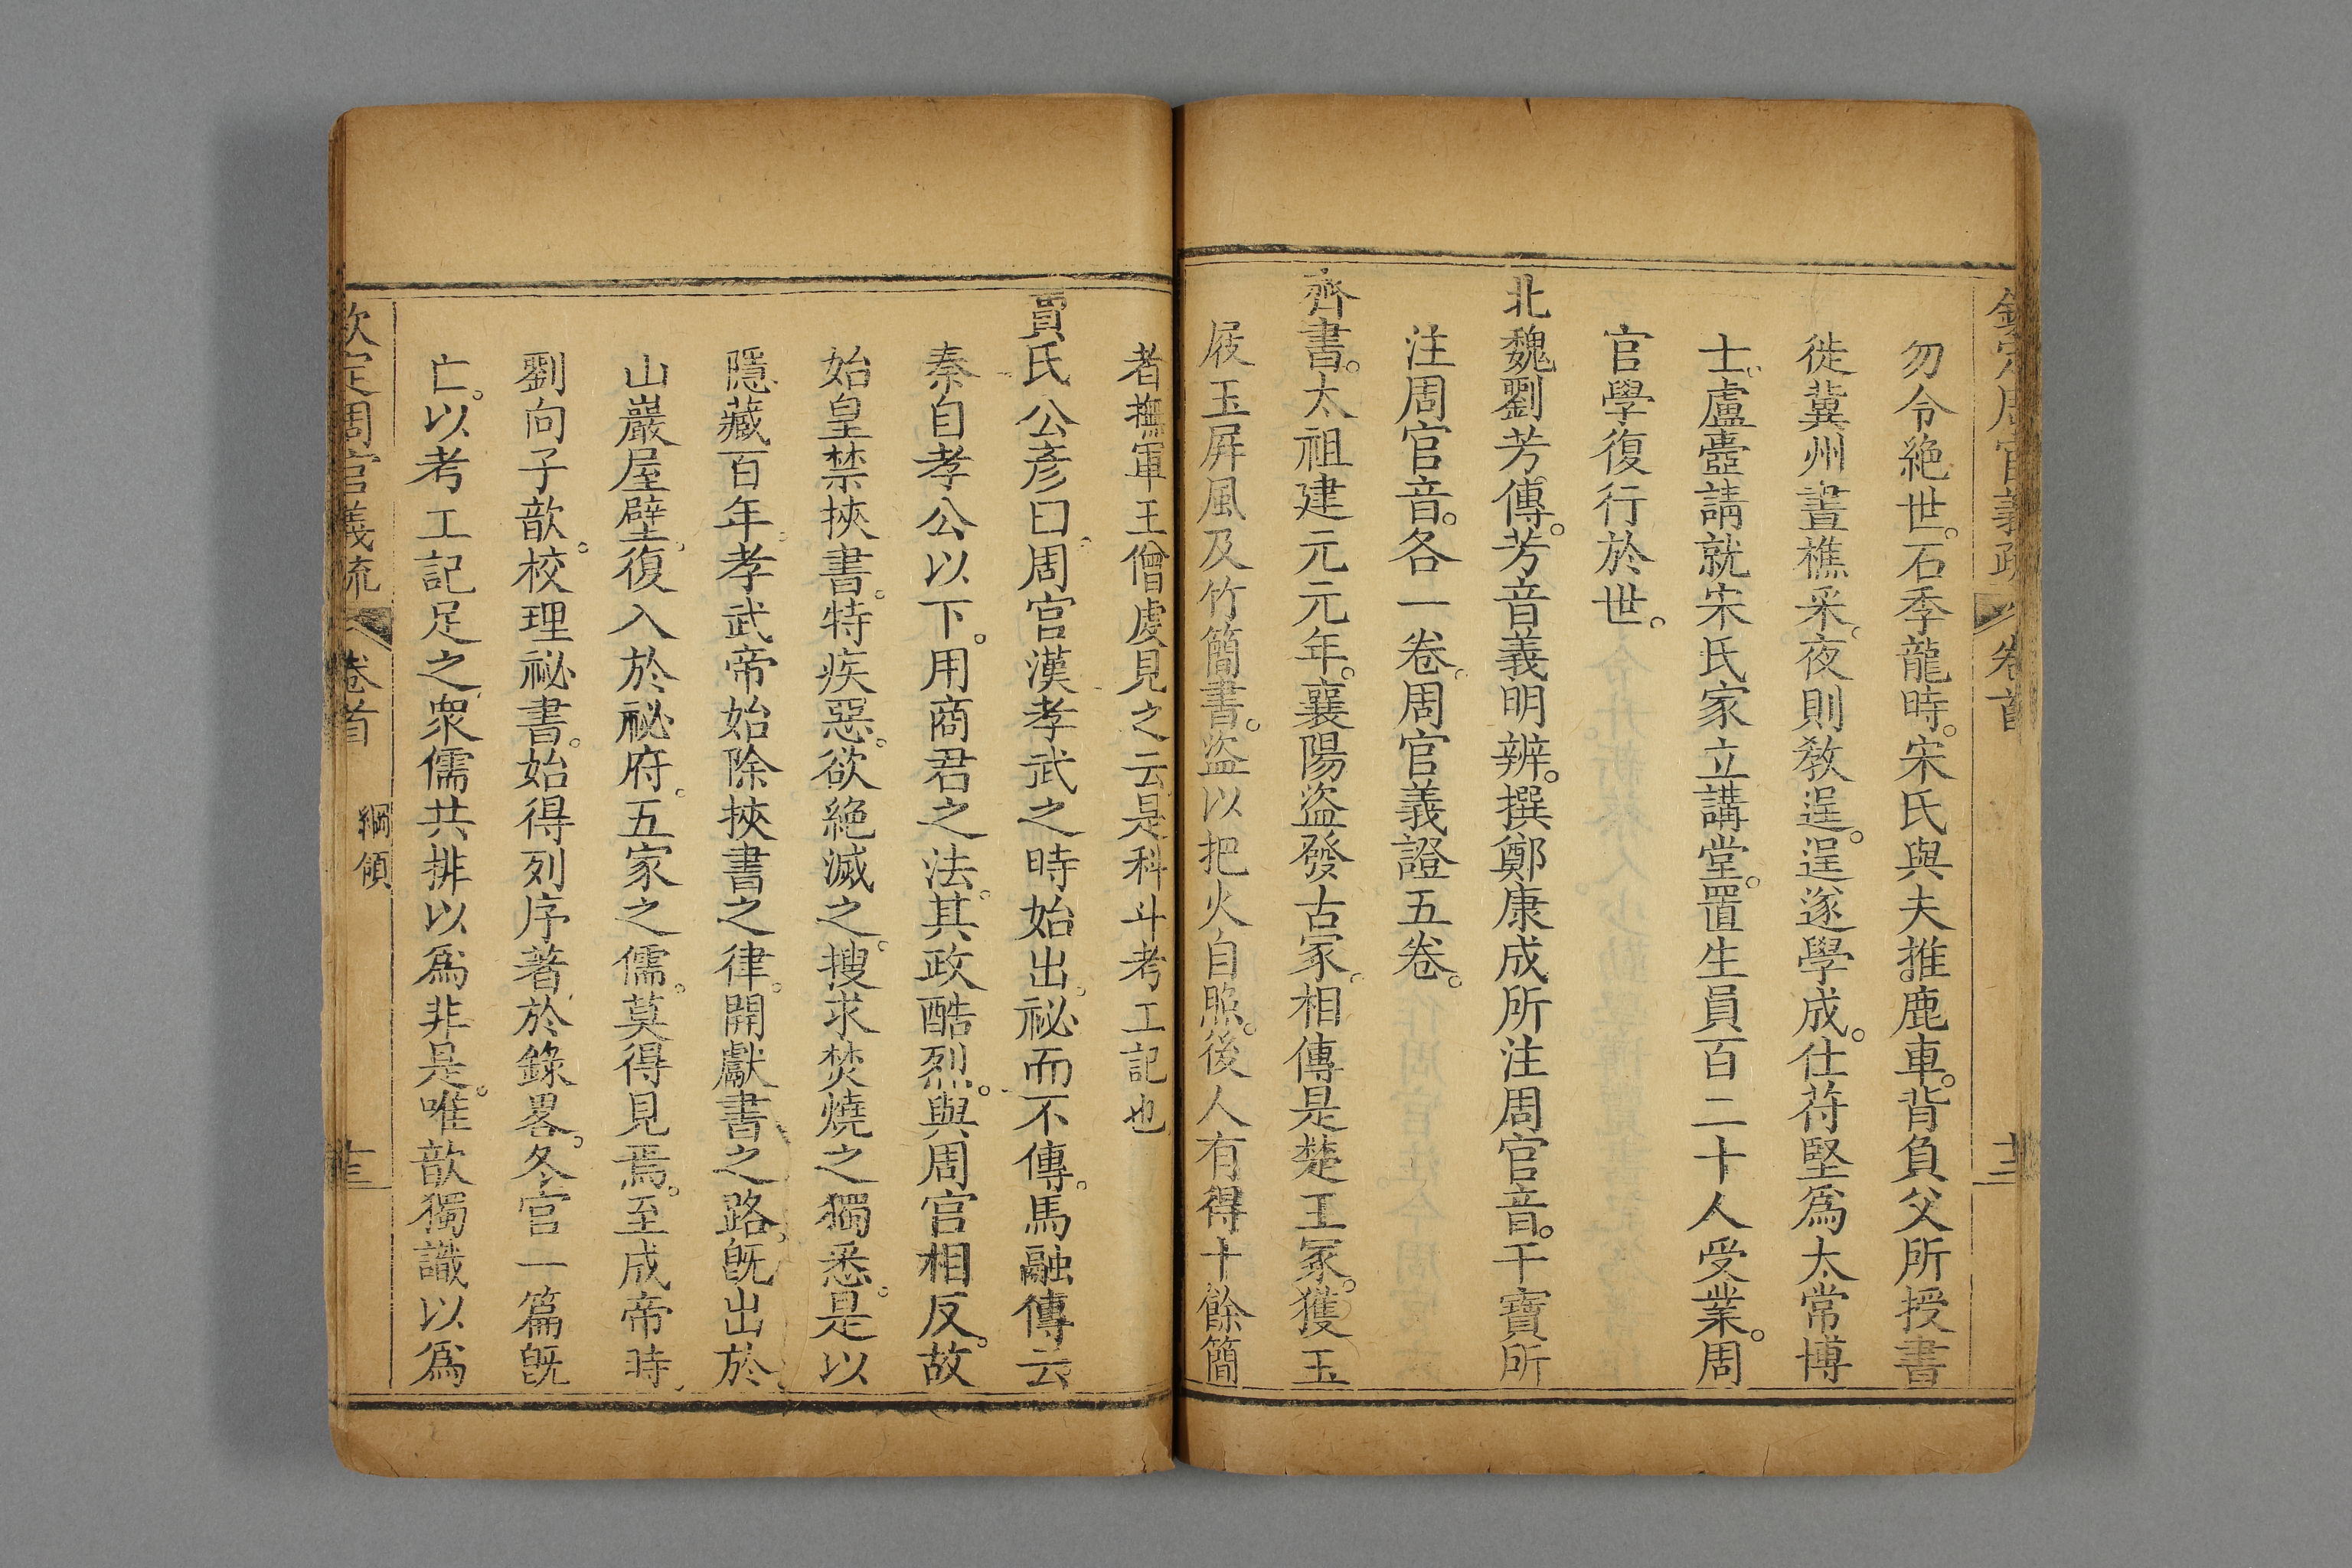 欽定周官義疏 卷首
勿令絶世。石季龍時。宋氏與夫推鹿車。背負父所授書
徙冀州晝樵采。夜則教逞。逞遂學成。仕苻堅爲太常博
士。盧壼請就宋氏家立講堂。置生員百二十人受業。周
官學復行於世。
北魏劉芳傳。芳音義明辨。撰鄭康成所注周官音。干寶所
注周官音。各一卷。周官義證五卷。
齊書。太祖建元元年。襄陽盜發古冢。相傳是楚王冢。獲玉
屐玉屏風及竹簡書。盜以把火自照。後人有得十餘簡
者撫軍王僧虔見之云是科斗考工記也
賈氏公彥曰。周官漢孝武之時始出。祕而不傳。馬融傳云
秦自孝公以下。用商君之法。其政酷烈。與周官相反。故
始皇禁挾書。特疾惡。欲絶滅之。搜求焚燒之獨悉。是以
隱藏百年。孝武帝始除挾書之律。開獻書之路。旣出於
山巖屋壁。復入於祕府。五家之儒。莫得見焉。至成帝時。
劉向子歆。校理祕書。始得列序著於錄畧。冬官一篇旣
亡。以考工記足之。衆儒共排以爲非是。唯歆獨識以爲
欽定周官義疏 卷首 綱領 十三